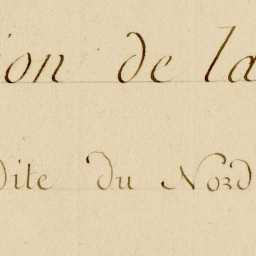 ion de la
dite du Nord